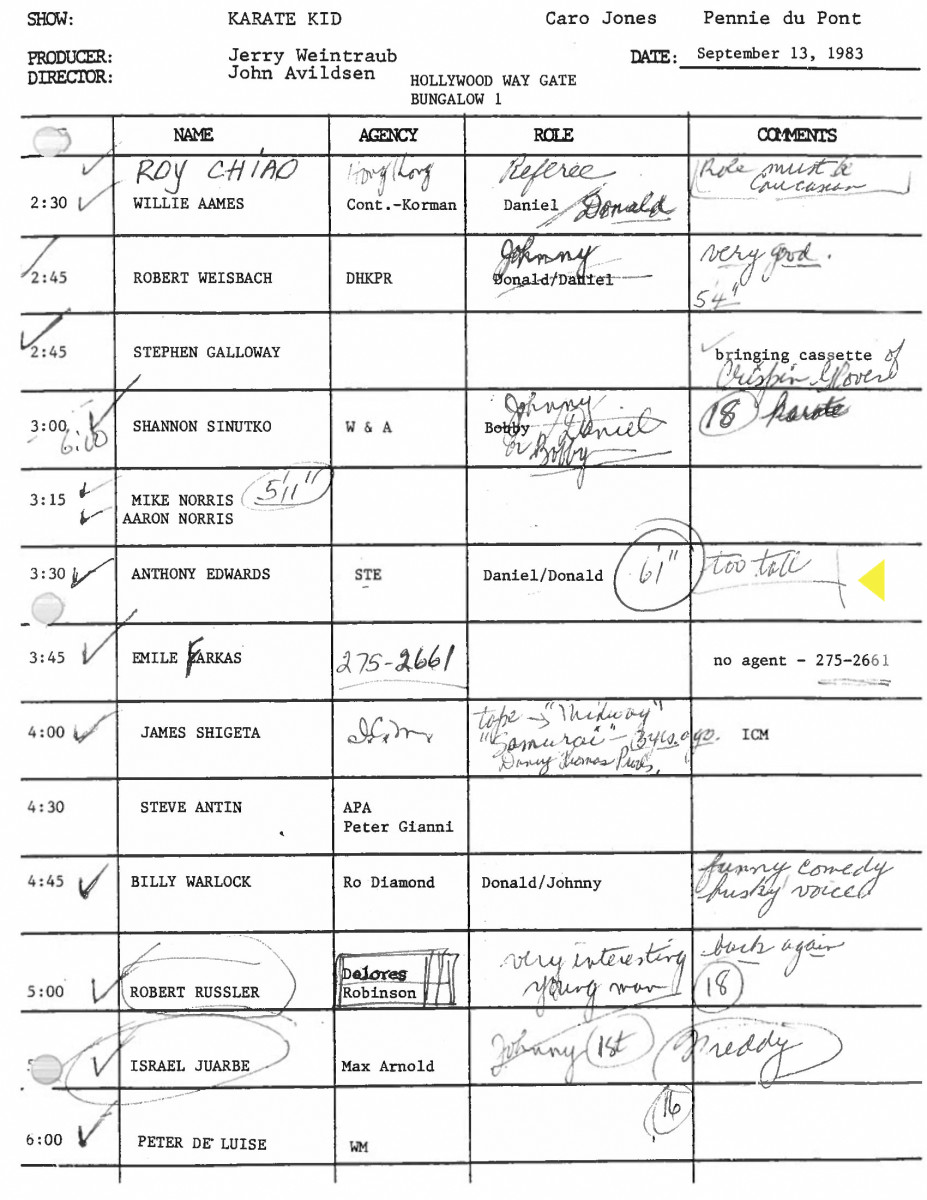 SHOW: KARATE KID Caro Jones Pennie du Pont
PRODUCER: Jerry Weintraub DATE: September 13, 1983
DIRECTOR: John Avildsen
HOLLYWOOD WAY GATE
BUNGALOW 1
NAME AGENCY ROLE COMMENTS
ROY CHIAO Hong Kong Referee Role must be Caucasian
2:30 WILLIE AAMES Cont.-Korman Daniel Donald
Johnny very good.
2:45 ROBERT WEISBACH DHKPR Donald/Daniel
5'4"
2:45 STEPHEN GALLOWAY bringing cassette of
Crispin Glover
Johnny
3:00 SHANNON SINUTKO W & A Bobby Daniel 18 karate
6:00 or Bobby
3:15 MIKE NORRIS 5'11"
AARON NORRIS
3:30 ANTHONY EDWARDS STE Daniel/Donald 6'1" too tall
3:45 EMILE FARKAS 275-2661 no agent - 275-2661
tape → "Midway"
4:00 JAMES SHIGETA I.C.M. "Samurai" - 3 yrs. ago. ICM
Danny Thomas Prods.
4:30 STEVE ANTIN APA
Peter Gianni
4:45 BILLY WARLOCK Ro Diamond Donald/Johnny funny comedy
husky voice
Delores very interesting back again
5:00 ROBERT RUSSLER Robinson young man 18
Johnny 1st Freddy
ISRAEL JUARBE Max Arnold
16
6:00 PETER DE LUISE WM